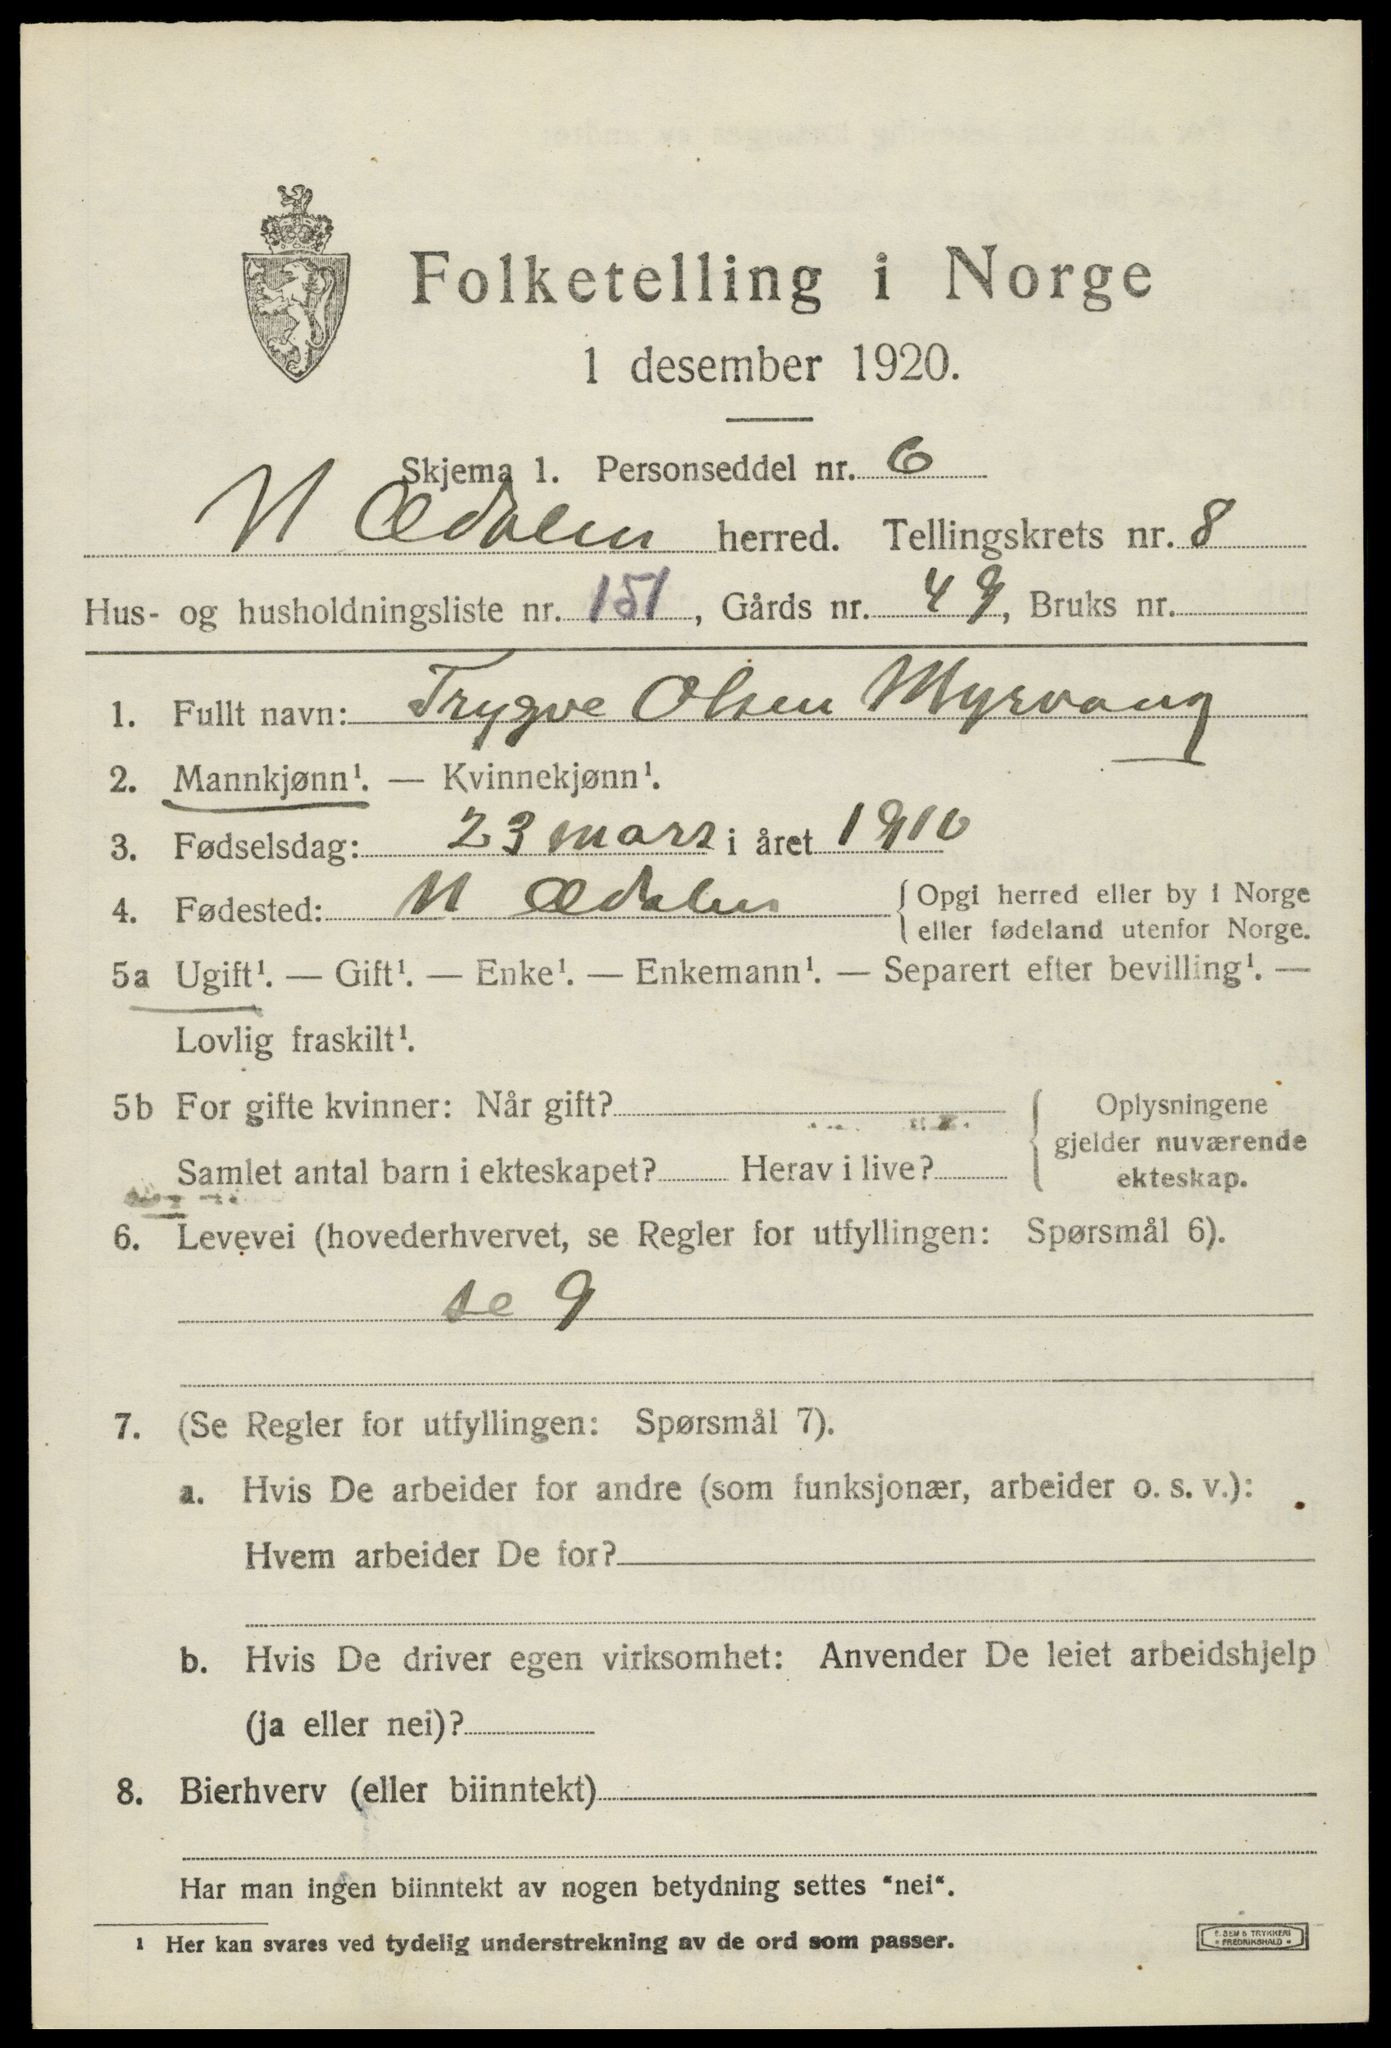 Folketelling i Norge
1 desember 1920.
Skjema 1. Personseddel nr. 6
N Ødalen herred. Tellingskrets nr. 8
Hus- og husholdningsliste nr. 151, Gårds nr. 49, Bruks nr.
1. Fullt navn: Trygve Olsen Myrvang
2. Mannkjønn¹. — Kvinnekjønn¹.
3. Fødselsdag: 23 mars i året 1910
4. Fødested: N Ødalen { Opgi herred eller by i Norge
eller fødeland utenfor Norge.
5a Ugift¹. — Gift¹. — Enke¹. — Enkemann¹. — Separert efter bevilling¹. —
Lovlig fraskilt¹.
5b For gifte kvinner: Når gift?
Samlet antal barn i ekteskapet? Herav i live?
{ Oplysningene
gjelder nuværende
ekteskap.
6. Levevei (hovederhvervet, se Regler for utfyllingen: Spørsmål 6).
se 9
7. (Se Regler for utfyllingen: Spørsmål 7).
a. Hvis De arbeider for andre (som funksjonær, arbeider o. s. v.):
Hvem arbeider De for?
b. Hvis De driver egen virksomhet: Anvender De leiet arbeidshjelp
(ja eller nei)?
8. Bierhverv (eller biinntekt)
Har man ingen biinntekt av nogen betydning settes "nei".
¹ Her kan svares ved tydelig understrekning av de ord som passer.
TRYKKERI
FREDRIKSHALD